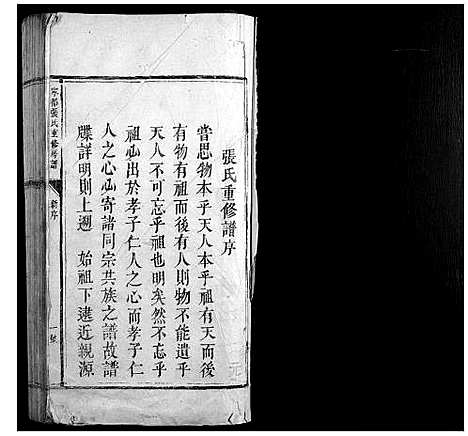 張氏重修譜序
嘗思物本乎天人本乎祖有天而後
有物有祖而後有人則物不能遺乎
天人不可忘乎祖也明矣然不忘乎
祖必出於孝子仁人之心而孝子仁
人之心必寄諸同宗共族之譜故譜
牒詳明則上遡 始祖下逮近親源
張氏重修
新序